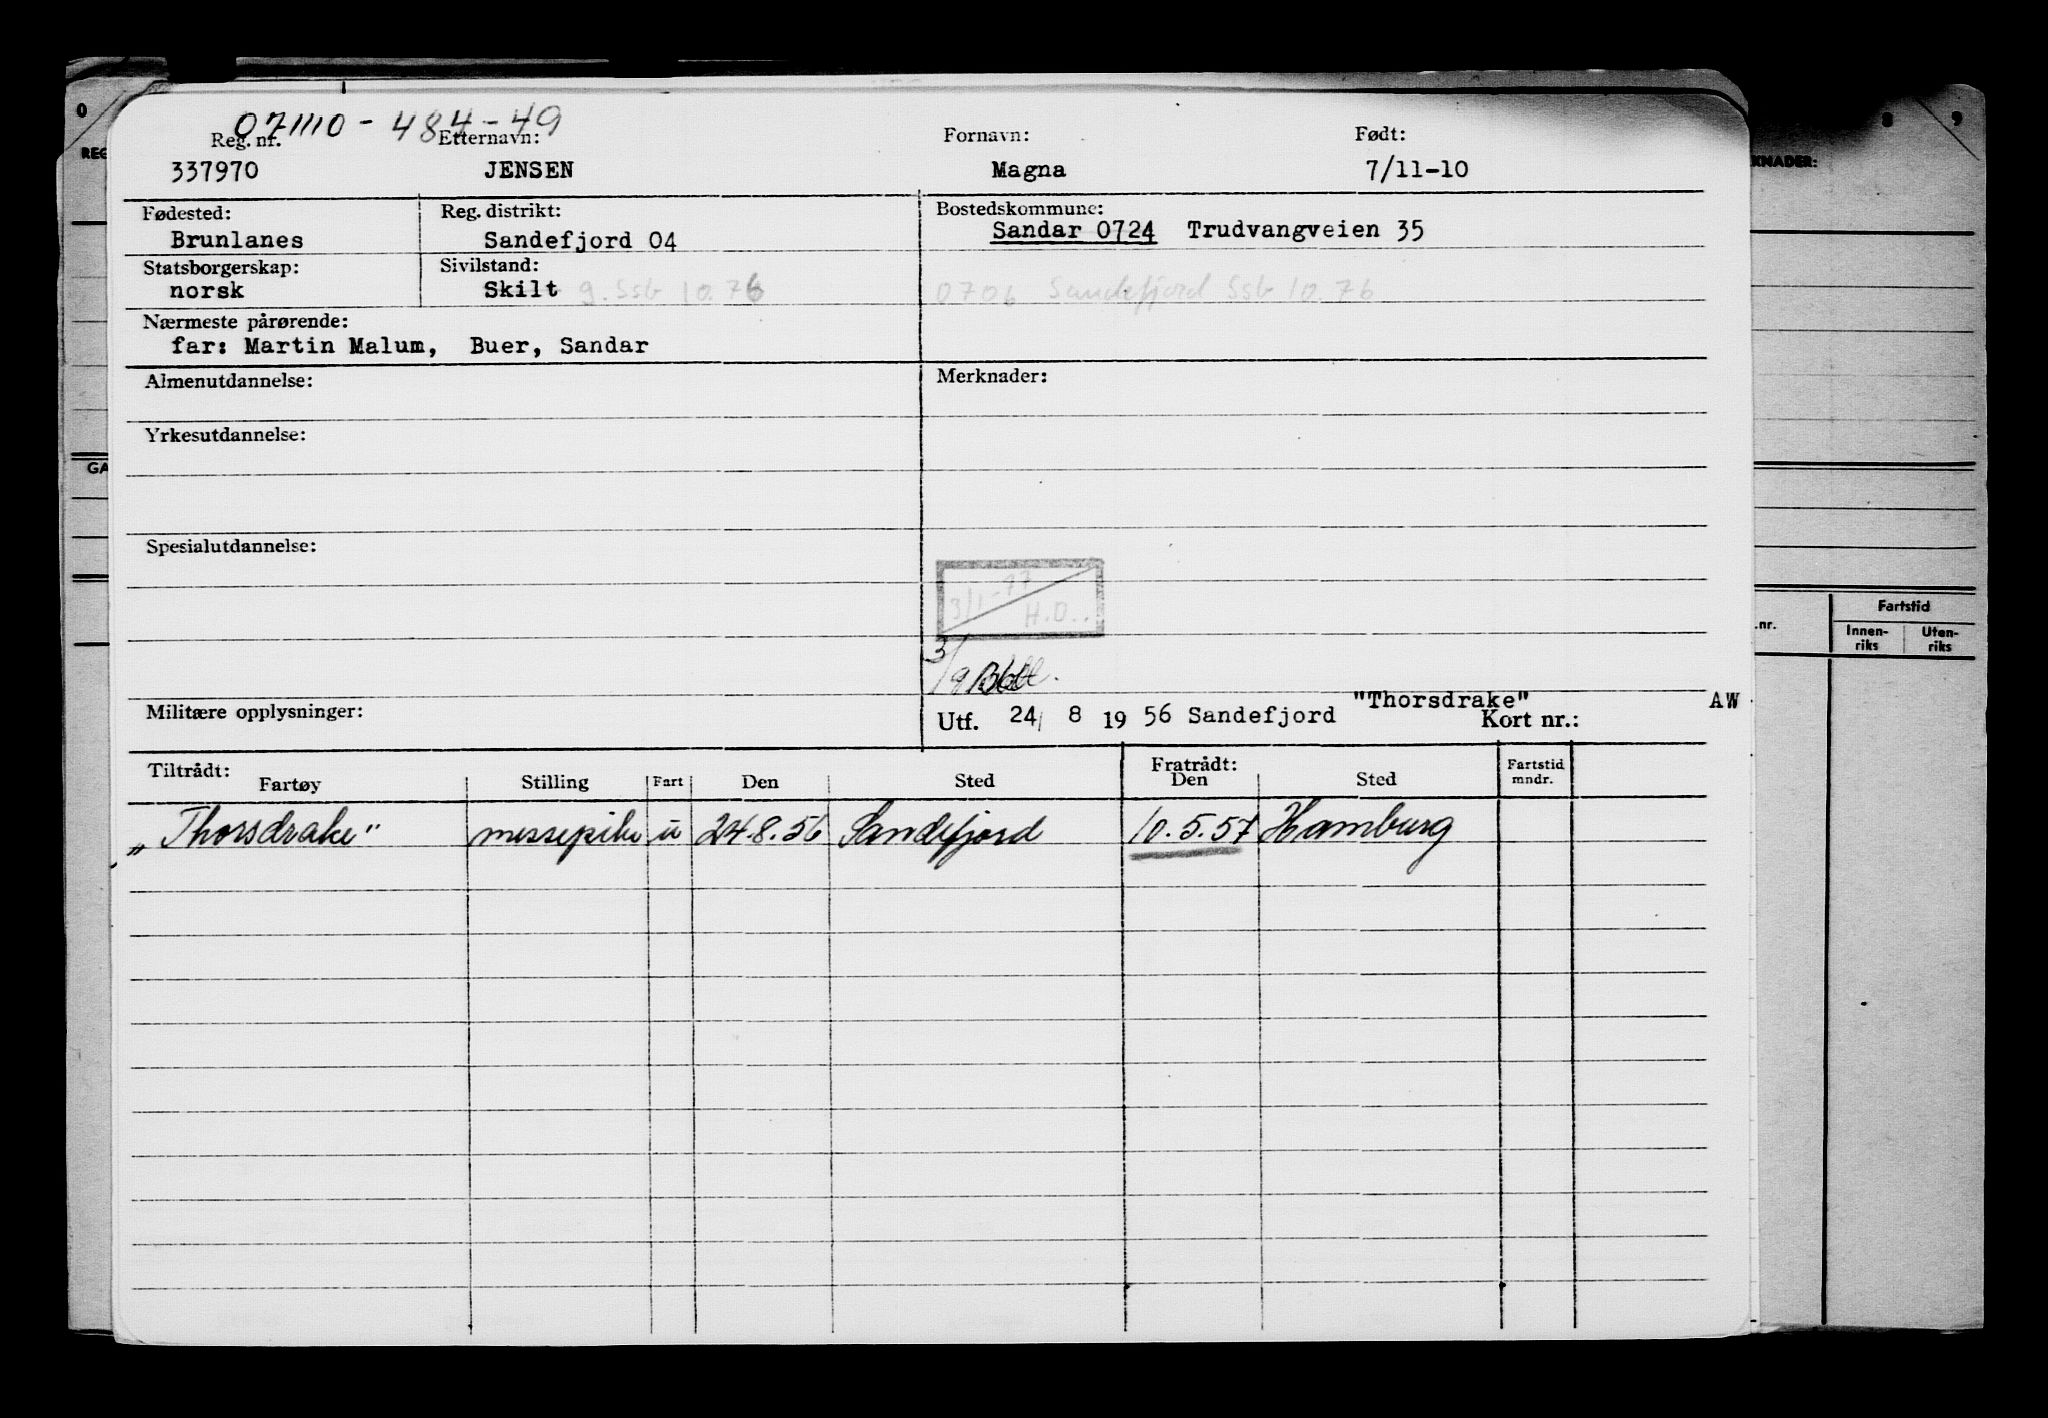 071110-484-49
Reg. nr. Etternavn: Fornavn: Født:
337970 JENSEN Magna 7/11-10
Fødested: Reg. distrikt: Bostedskommune:
Brunlanes Sandefjord 04 Sandar 0724 Trudvangveien 35
Statsborgerskap: Sivilstand:
norsk Skilt g. Ssb 10.76 0706 Sandefjord Ssb 10.76
Nærmeste pårørende:
far: Martin Malum, Buer, Sandar
Almenutdannelse: Merknader:
Yrkesutdannelse:
Spesialutdannelse:
3/1-77
H.O..
3/9
"Thorsdrake" AW
Militære opplysninger: Utf. 24/ 8 19 56 Sandefjord Kort nr.:
Tiltrådt: Fratrådt:
Fartøy Stilling Fart Den Sted Den Sted Fartstid mndr.
„Thorsdrake" messepike u 24.8.56 Sandefjord 10.5.57 Hamburg
0
REG
GA
8 9
KNADER:
Fartstid
.nr. Innen-riks Uten-riks